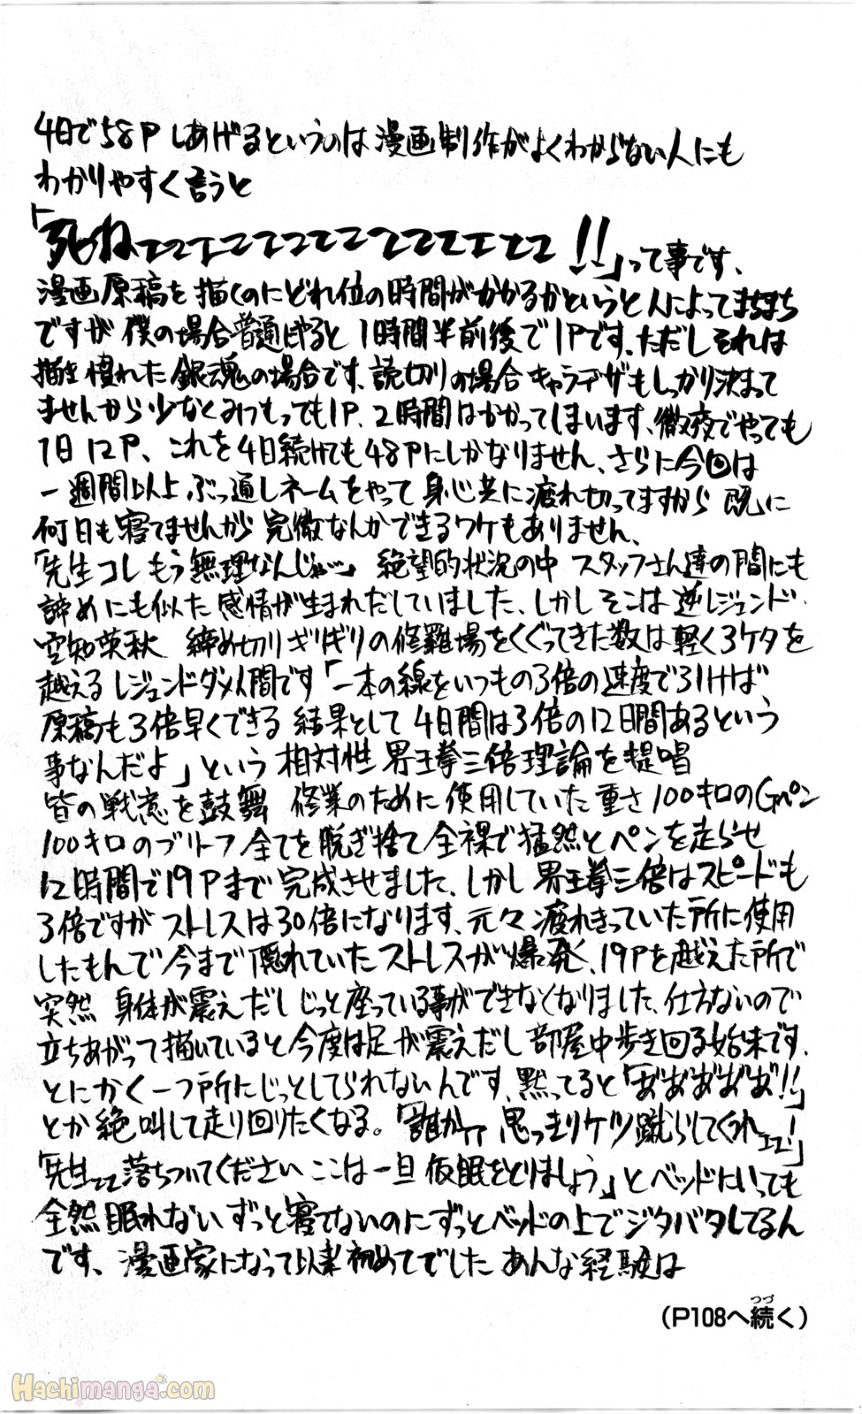 4日で58Pしあげるというのは漫画制作がよくわからない人にも
わかりやすく言うと
「死ねェェェェェェェェェェェェェ!!」って事です、
漫画原稿を描くのにどれ位の時間がかかるかというと人によってまちまち
ですが僕の場合普通にやると1時間半前後で1Pです、ただしそれは
描き慣れた銀魂の場合です、読切りの場合キャラデザもしっかり決まって
ませんから少なくみつもっても1P、2時間はかかってしまいます、徹夜でやっても
1日12P、これを4日続けても48Pにしかなりません、さらに今回は
一週間以上ぶっ通しネームをやって身心共に疲れ切ってますから既に
何日も寝てませんが完徹なんかできるワケもありません、
「先生コレもう無理なんじゃ…」絶望的状況の中スタッフさん達の間にも
諦めにも似た感情が生まれだしていました、しかしそこは逆レジェンド
空知英秋 締め切りギリギリの修羅場をくぐってきた数は軽く3ケタを
越えるレジェンドダメ人間です「一本の線をいつもの3倍の速度で引けば
原稿も3倍早くできる 結果として4日間は3倍の12日間あるという
事なんだよ」という相対性界王拳三倍理論を提唱
皆の戦意を鼓舞 修業のために使用していた重さ100キロのGペン
100キロのブリーフ全てを脱ぎ捨て全裸で猛然とペンを走らせ
12時間で19Pまで完成させました、しかし界王拳三倍はスピードも
3倍ですがストレスは30倍になります、元々疲れきっていた所に使用
したもんで今まで隠れていたストレスが爆発、19Pを越えた所で
突然 身体が震えだしじっと座っている事ができなくなりました、仕方ないので
立ちあがって描いていると今度は足が震えだし部屋中歩き回る始末です、
とにかく一つ所にじっとしてられないんです、黙ってると「あ゛あ゛あ゛あ゛あ゛!!」
とか絶叫して走り回りたくなる。「誰かァァ 思っきりケツ蹴らしてくれェェ!」
「先生ェェ落ちついてください ここは一旦仮眠をとりましょう」とベッドにいっても
全然眠れない ずっと寝てないのにずっとベッドの上でジタバタしてるん
です、漫画家になって以来初めてでした あんな経験は
(P108へ続く)
つづ
Hachimanga.com